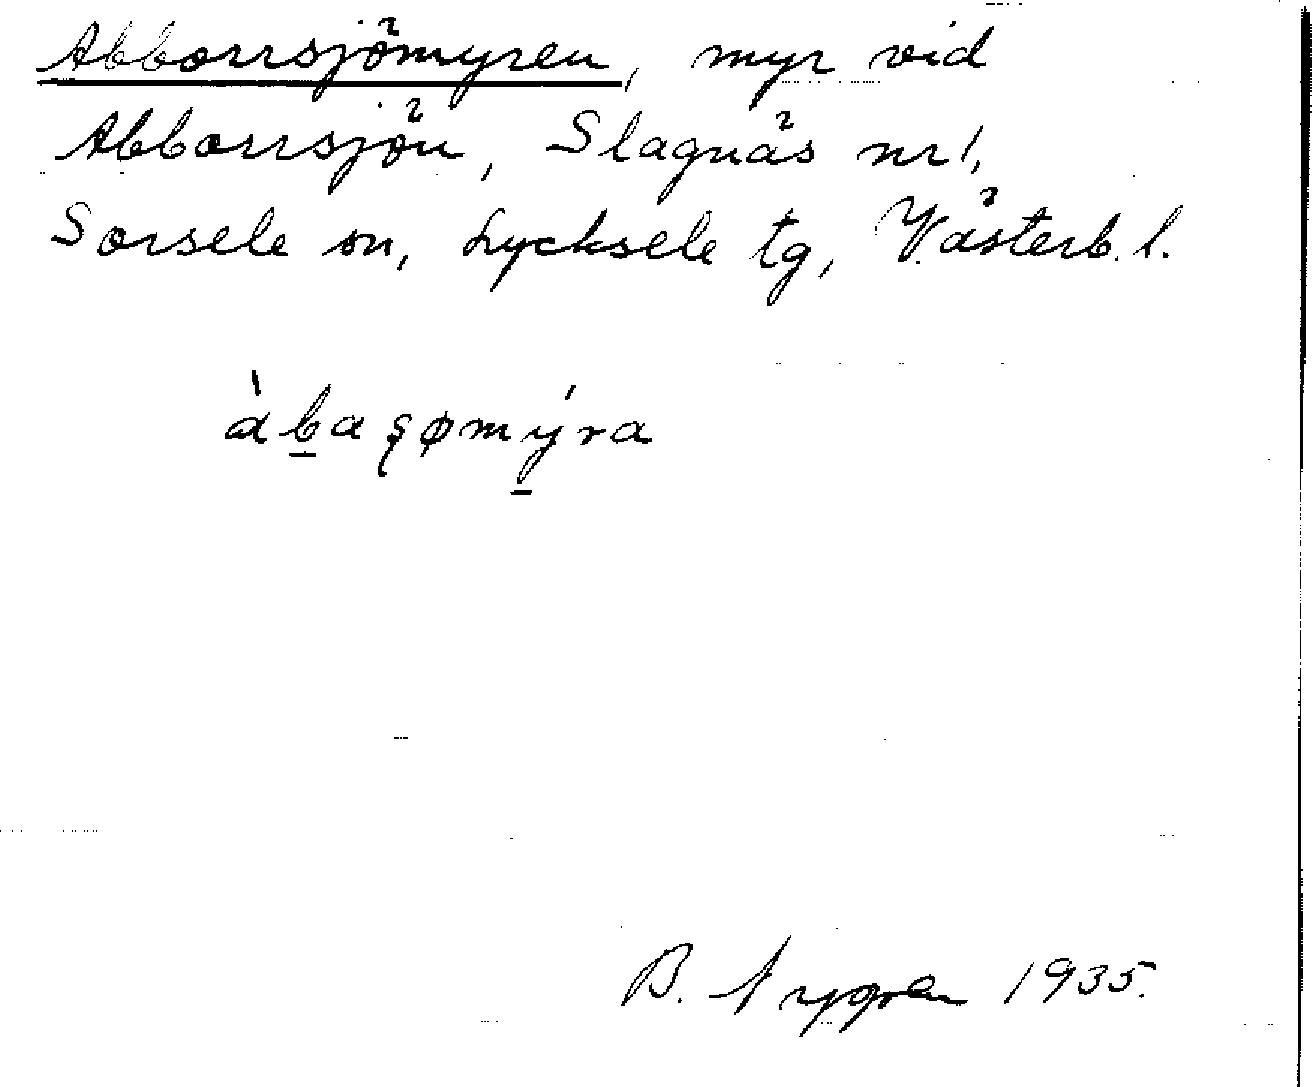 Abborrsjömyren, myr vid
Abborrsjön, Slagnäs nr 1,
Sorsele sn, Lycksele tg, Västerb. l.
àbaşømýra
B. Nygren 1935.